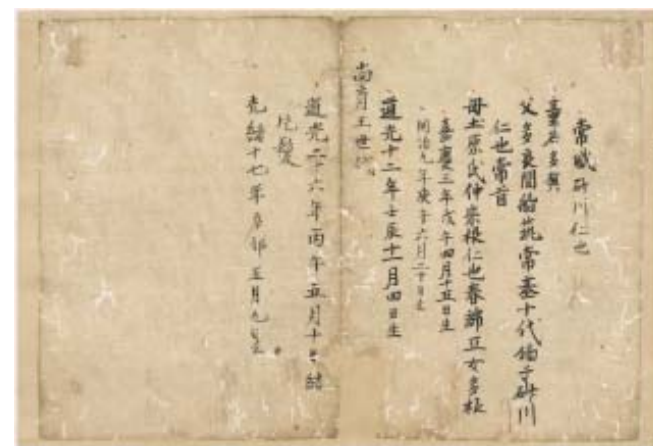 常職 砂川仁也
童名多與
父多良間船筑常基十代嫡子砂川
仁也常首
母土原氏仲宗根仁也春綿豆女多板
嘉慶三年戊午四月十五日生
同治九年庚午六月二十日生
道光十二年壬辰十一月四日生
尚育王世代
道光二十六年丙午五月十日結
光緒十七年辛卯五月九日